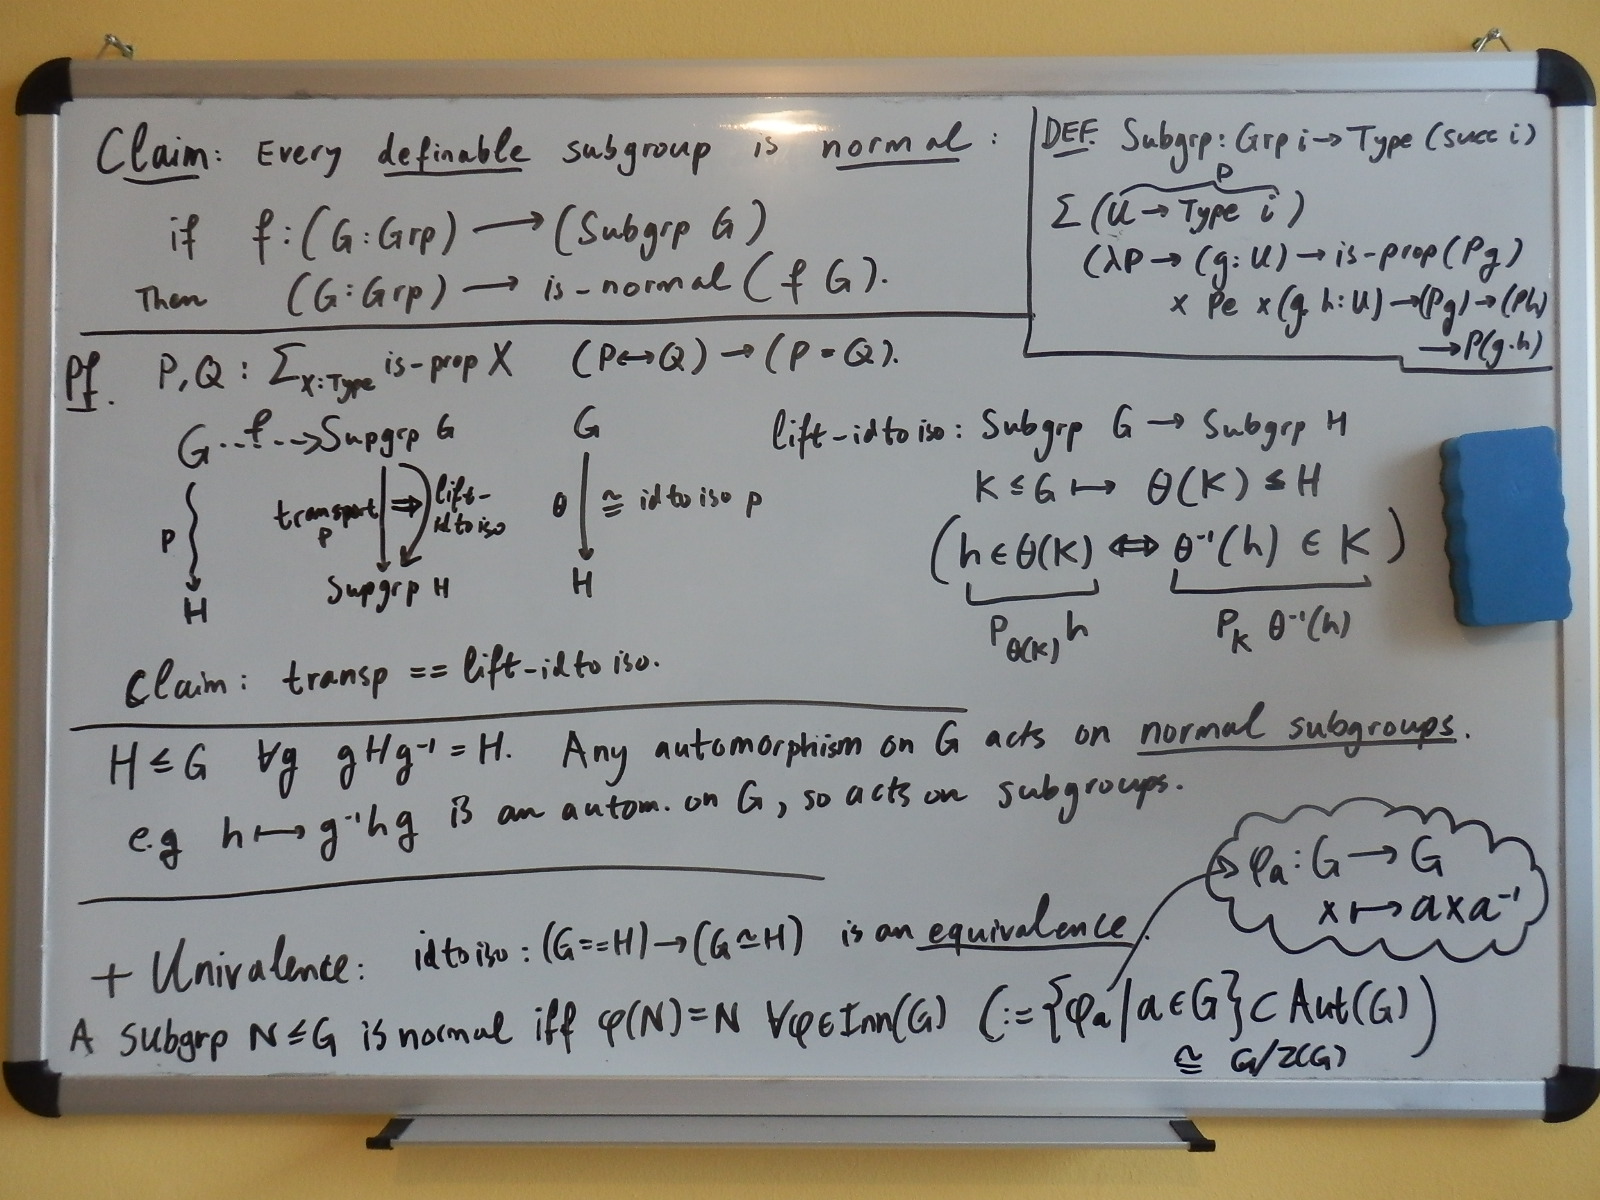 Claim: Every definable subgroup is normal:
if f:(G:Grp) ⟶ (Subgrp G)
Then (G:Grp) ⟶ is-normal (f G).
DEF. Subgrp: Grp i → Type (succ i)
P
Σ (U → Type i)
(λP → (g:U) → is-prop(Pg)
× Pe × (g h:U) → (Pg) → (Ph)
⟶ P(g·h)
Pf. P,Q : Σ_{X:Type} is-prop X (P↔Q) → (P=Q).
G --f--> Supgrp G
p
transport p ⇒ lift-idtoiso
H
Supgrp H
G
θ ≅ idtoiso p
H
lift-idtoiso: Subgrp G → Subgrp H
K ≤ G ↦ θ(K) ≤ H
(h ∈ θ(K) ⇔ θ⁻¹(h) ∈ K)
P_{θ(K)} h P_K θ⁻¹(h)
Claim: transp == lift-idtoiso.
H ≤ G ∀g gHg⁻¹ = H. Any automorphism on G acts on normal subgroups.
e.g h ↦ g⁻¹hg is an autom. on G, so acts on subgroups.
φₐ: G ⟶ G
x ↦ axa⁻¹
+ Univalence: idtoiso: (G==H) → (G≃H) is an equivalence.
A subgrp N ≤ G is normal iff φ(N)=N ∀φ∈Inn(G) (:={φₐ | a∈G} ⊂ Aut(G))
≅ G/Z(G)